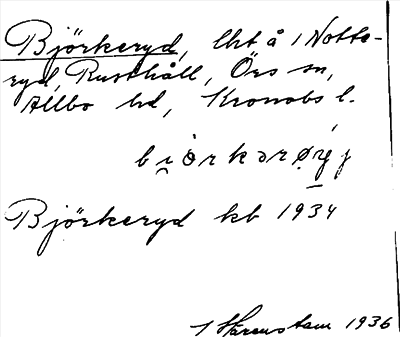 Björkeryd, lht å 1 Notte-
ryd, Rusthåll, Örs sn,
Allbo hd, Kronobs l.
Björkeryd kb 1934
1 Harenstam 1936